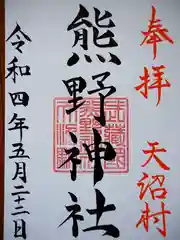 奉拝 天沼村
熊野神社
令和四年五月二十二日